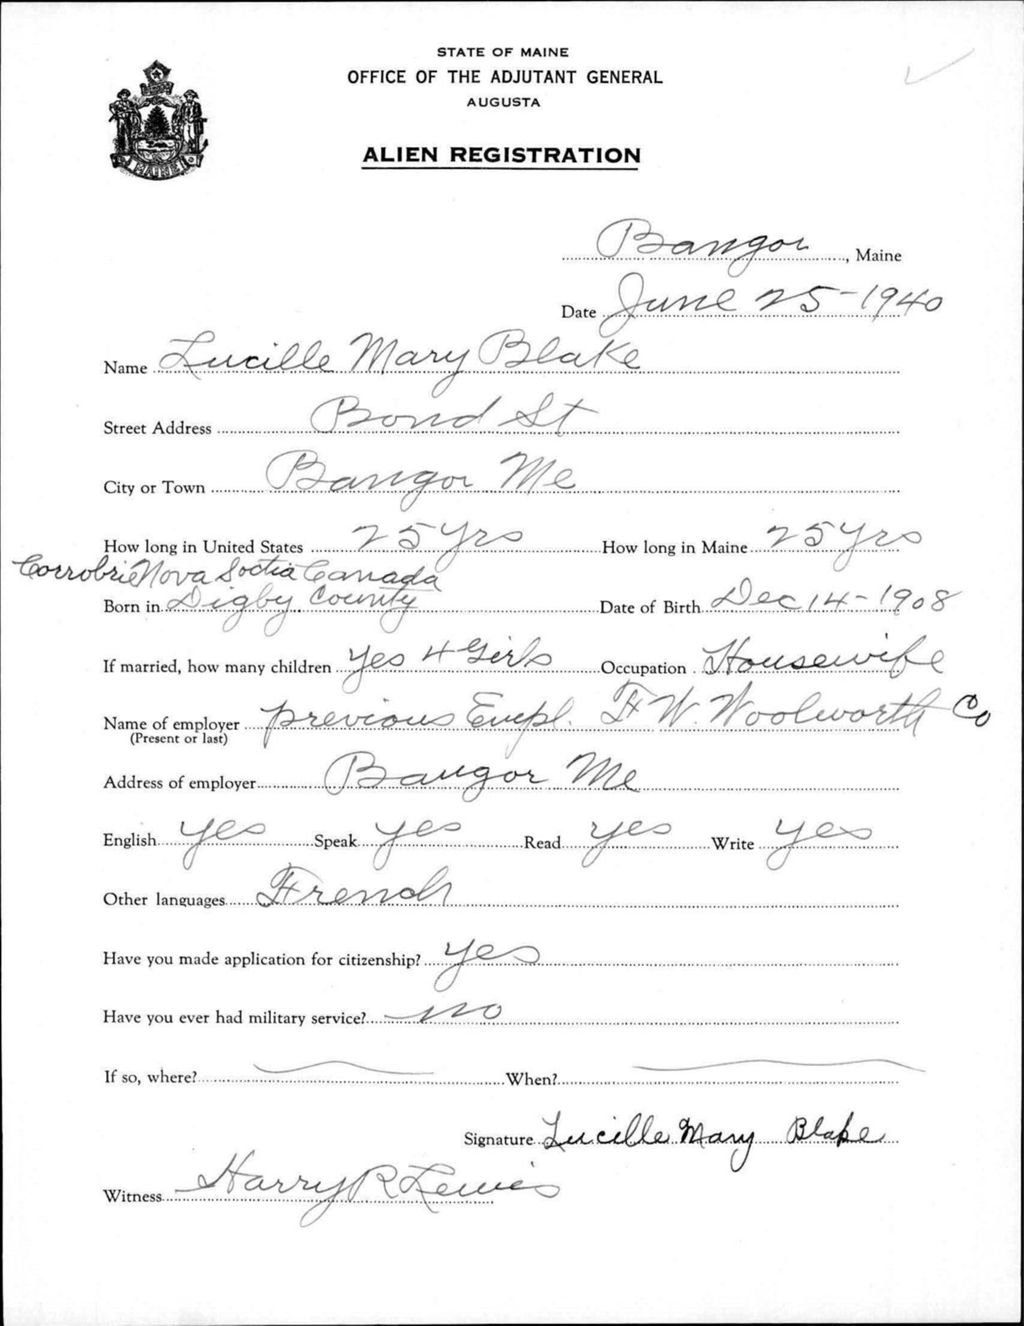 STATE OF MAINE
OFFICE OF THE ADJUTANT GENERAL
AUGUSTA
ALIEN REGISTRATION
MAINE
Bangor, Maine
Date June 25-1940
Name Lucille Mary Blake
Street Address Bond St
City or Town Bangor Me
How long in United States 25 Yrs How long in Maine 25 Yrs
Corrobrie Nova Soctia Canada
Born in Digby County Date of Birth Dec 14-1908
If married, how many children yes 4 Girls Occupation Housewife
Name of employer previous Empl. F W. Woolworth Co
(Present or last)
Address of employer Bangor Me
English yes Speak yes Read yes Write yes
Other languages French
Have you made application for citizenship? yes
Have you ever had military service? no
If so, where? When?
Signature Lucille Mary Blake
Witness Harry R Lewis